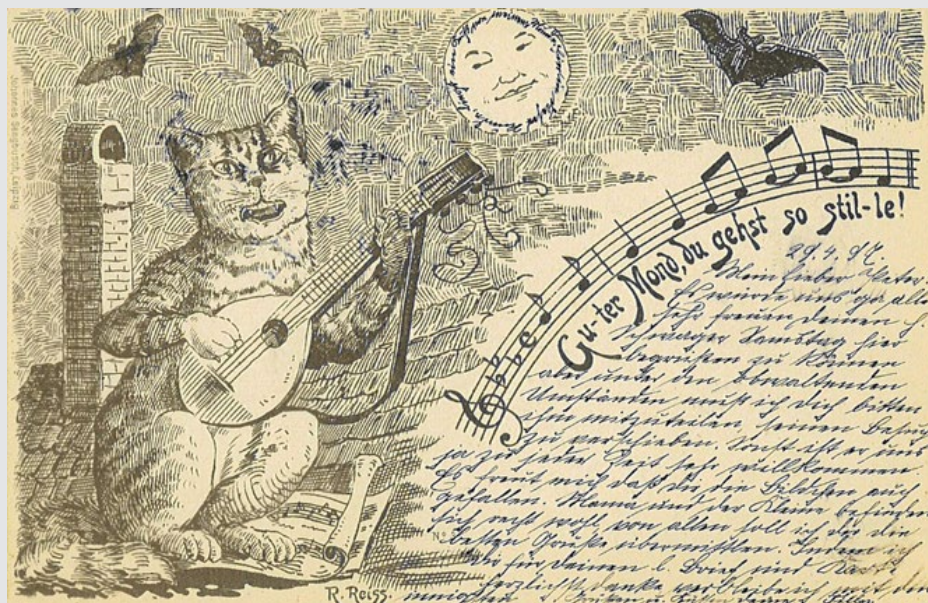 Gu-ter Mond, du gehst so stil-le!
29.4.97.
Mein lieber Peter
Es würde uns ja alle
sehr freuen deinen
Schwager Samstag hier
begrüßen zu können
aber unter den obwaltenden
Umständen muß ich dich bitten
ihm mitzuteilen, seinen Besuch
zu verschieben. Sonst ist er uns
ja zu jeder Zeit sehr willkommen.
Es freut mich daß dir die Bildchen auch
gefallen. Mama und der Kleine befinden
sich recht wohl von allen soll ich dir die
besten Grüße übermitteln. Indem ich
dir für deinen l. Brief und
herzlichst danke verbleibe ich mit den
innigsten
R. Reiss.